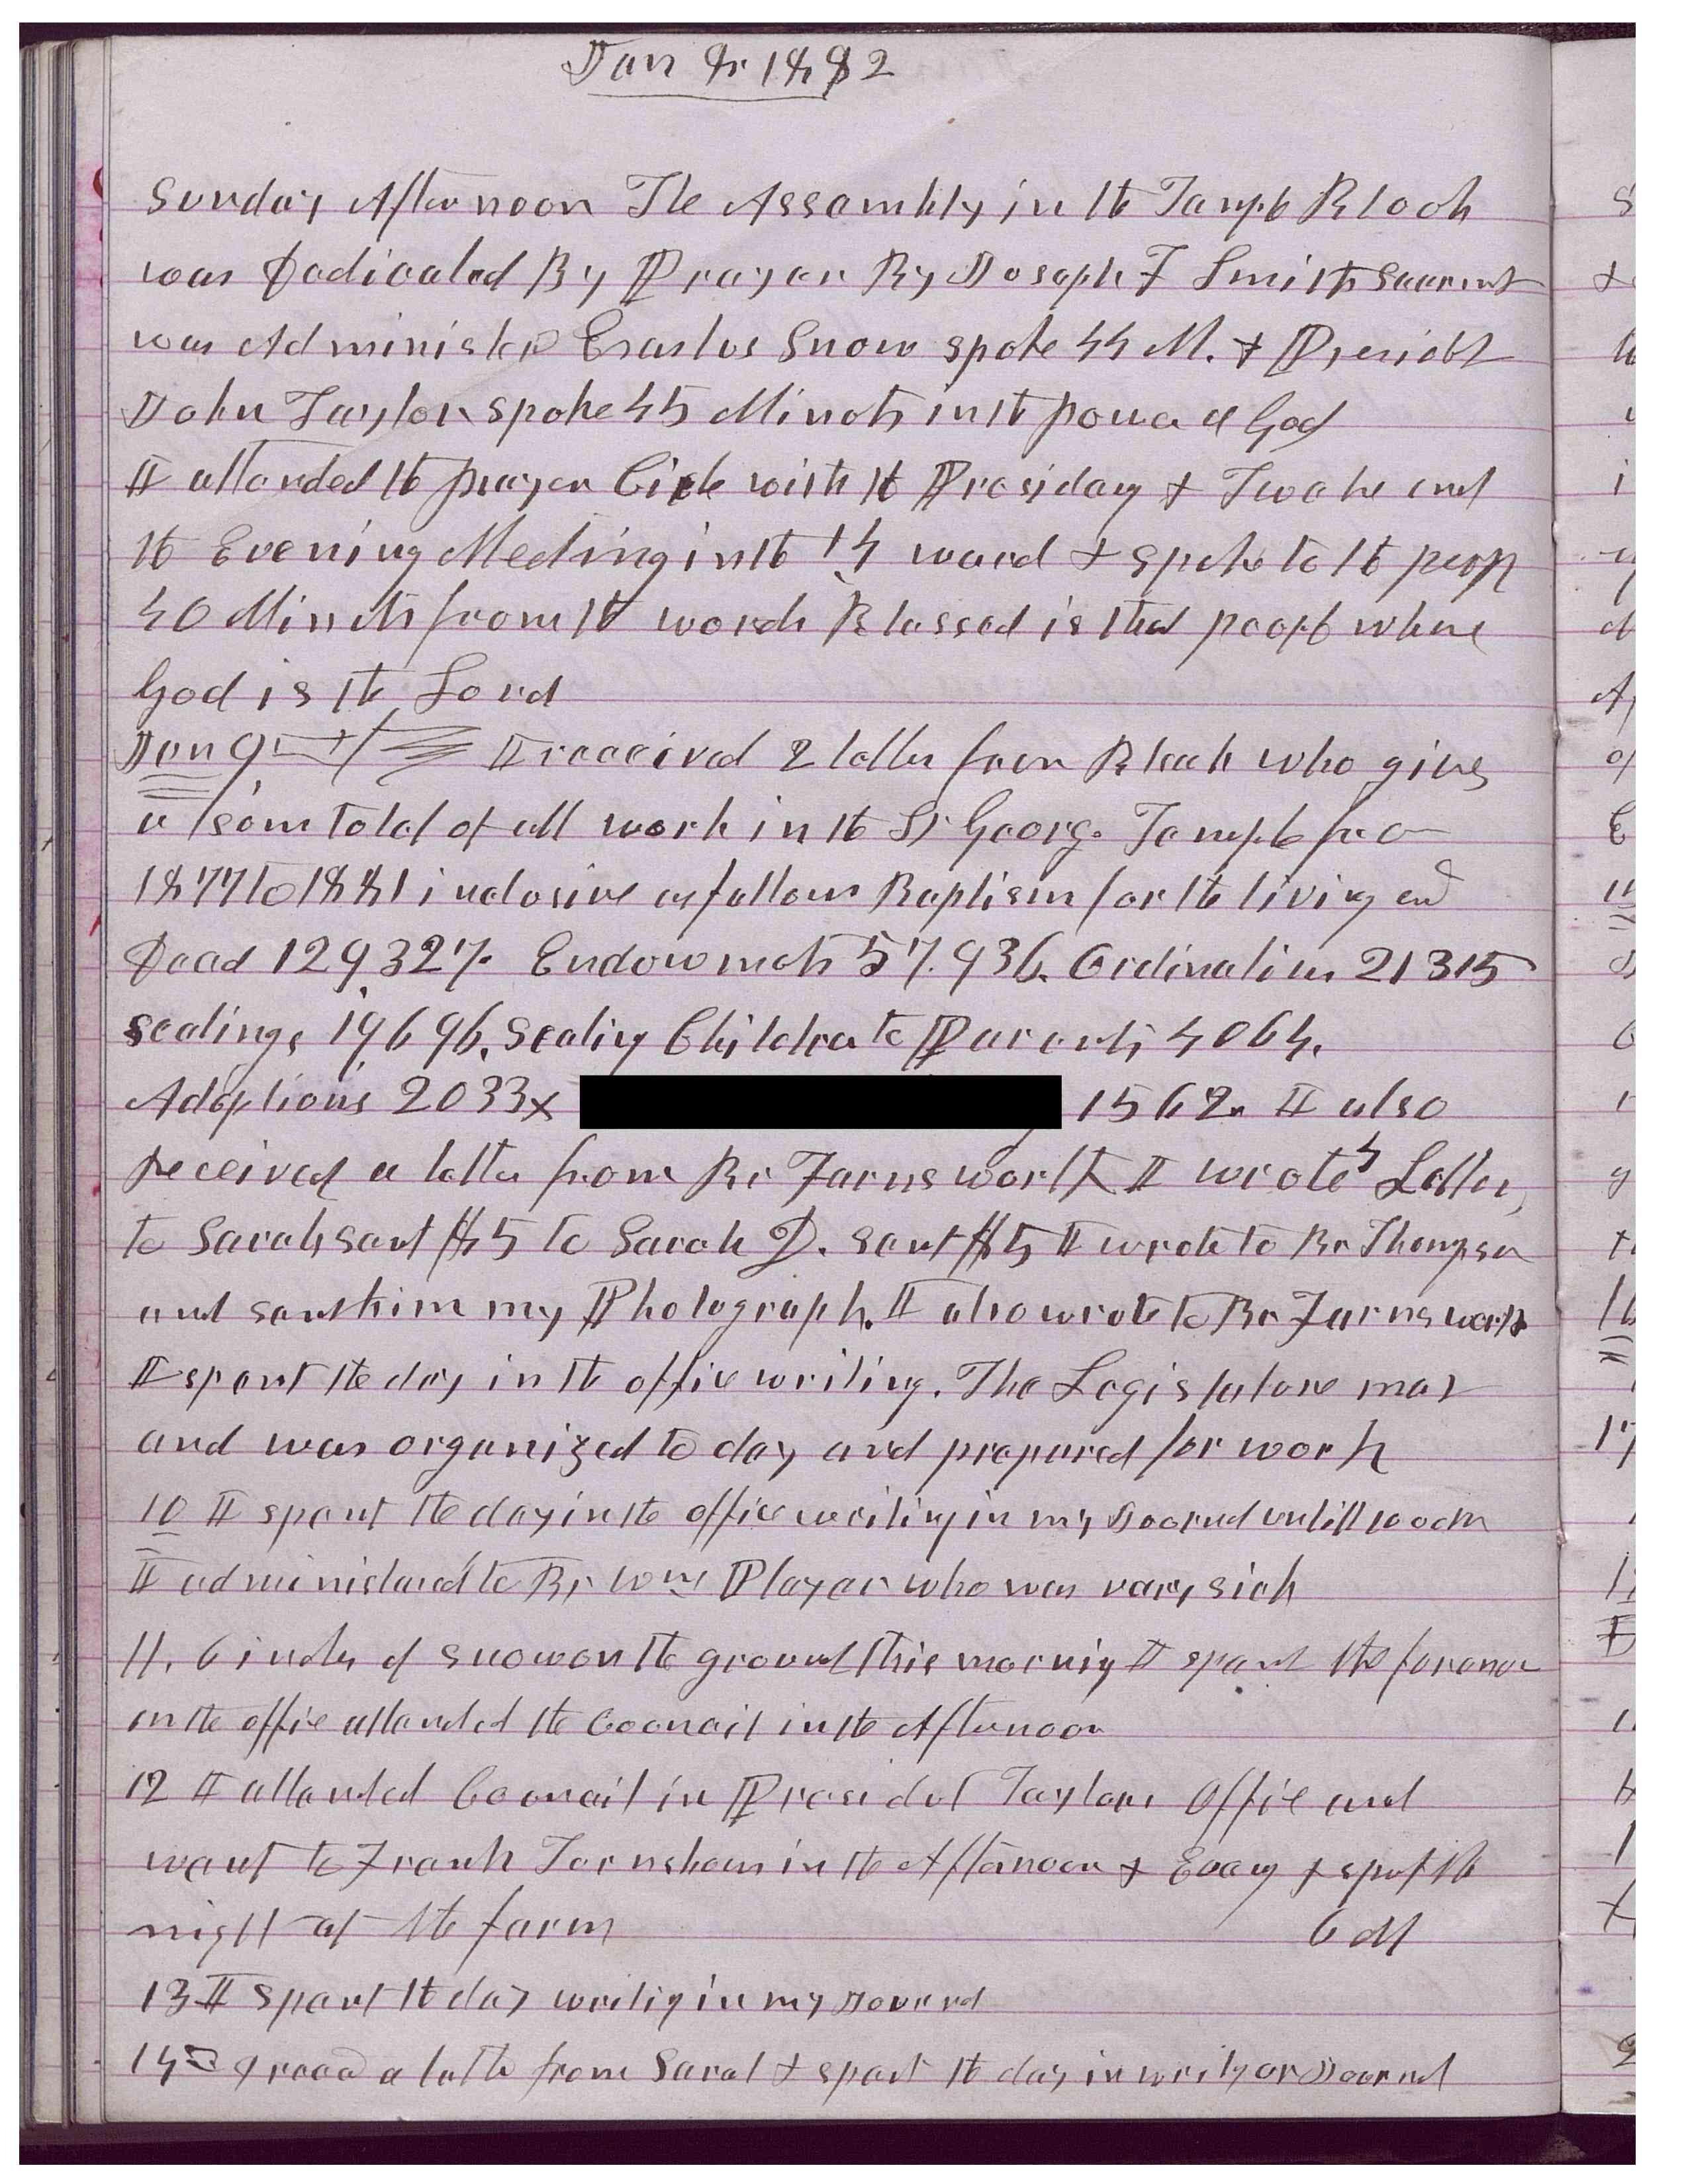 Jan 8, 1882
Sunday Afternoon The Assembly in the Temple Block
was Dedicated By Prayer By Joseph F Smith Sacrmet
was Administed Erastus Snow spoke 44 M. & Presidet
John Taylor spoke 45 Minuts in the power of God
I attended the prayer Circle with the Presidency & Twelve and
the Evening Meeting in the 14 ward & spoke to the people
40 Minuts from the words Blessed is that people whose
God is the Lord
Jan 9 I received 2 letters from Bleak who gives
a sum total of all work in the St George Temple from
1877 to 1881 inclusive as follows Baptism for the living and
Dead 129,327. Endowmets 57,936. Ordinations 21315
sealings 19696. Sealing Children to Parents 4064.
Adoptions 2033x 1562. I also
received a letter from Br Farnsworth I wrote 4 Letters
to Sarah sent $5 to Sarah D. sent $5 I wrote to Br Thompson
and sent him my Photograph. I also wrote to Br Farnsworth
I spent the day in the office writing. The Legislature met
and was organized to day and prepared for work
10 I spent the day in the office writing in my Journal untill noon
I administered to Br Wm Player who was very sick
11. 6 inches of snow on the ground this morning I spent the forenoon
in the office attended the Council in the Afternoon
12 I attended Council in Presidet Taylors Office and
went to Frank in the Afternoon & Eveng & spent the
night at the farm 6 M
13 I spent the day writing in my Journal
14 I recd a letter from Sarah & spent the day in writing or Journal